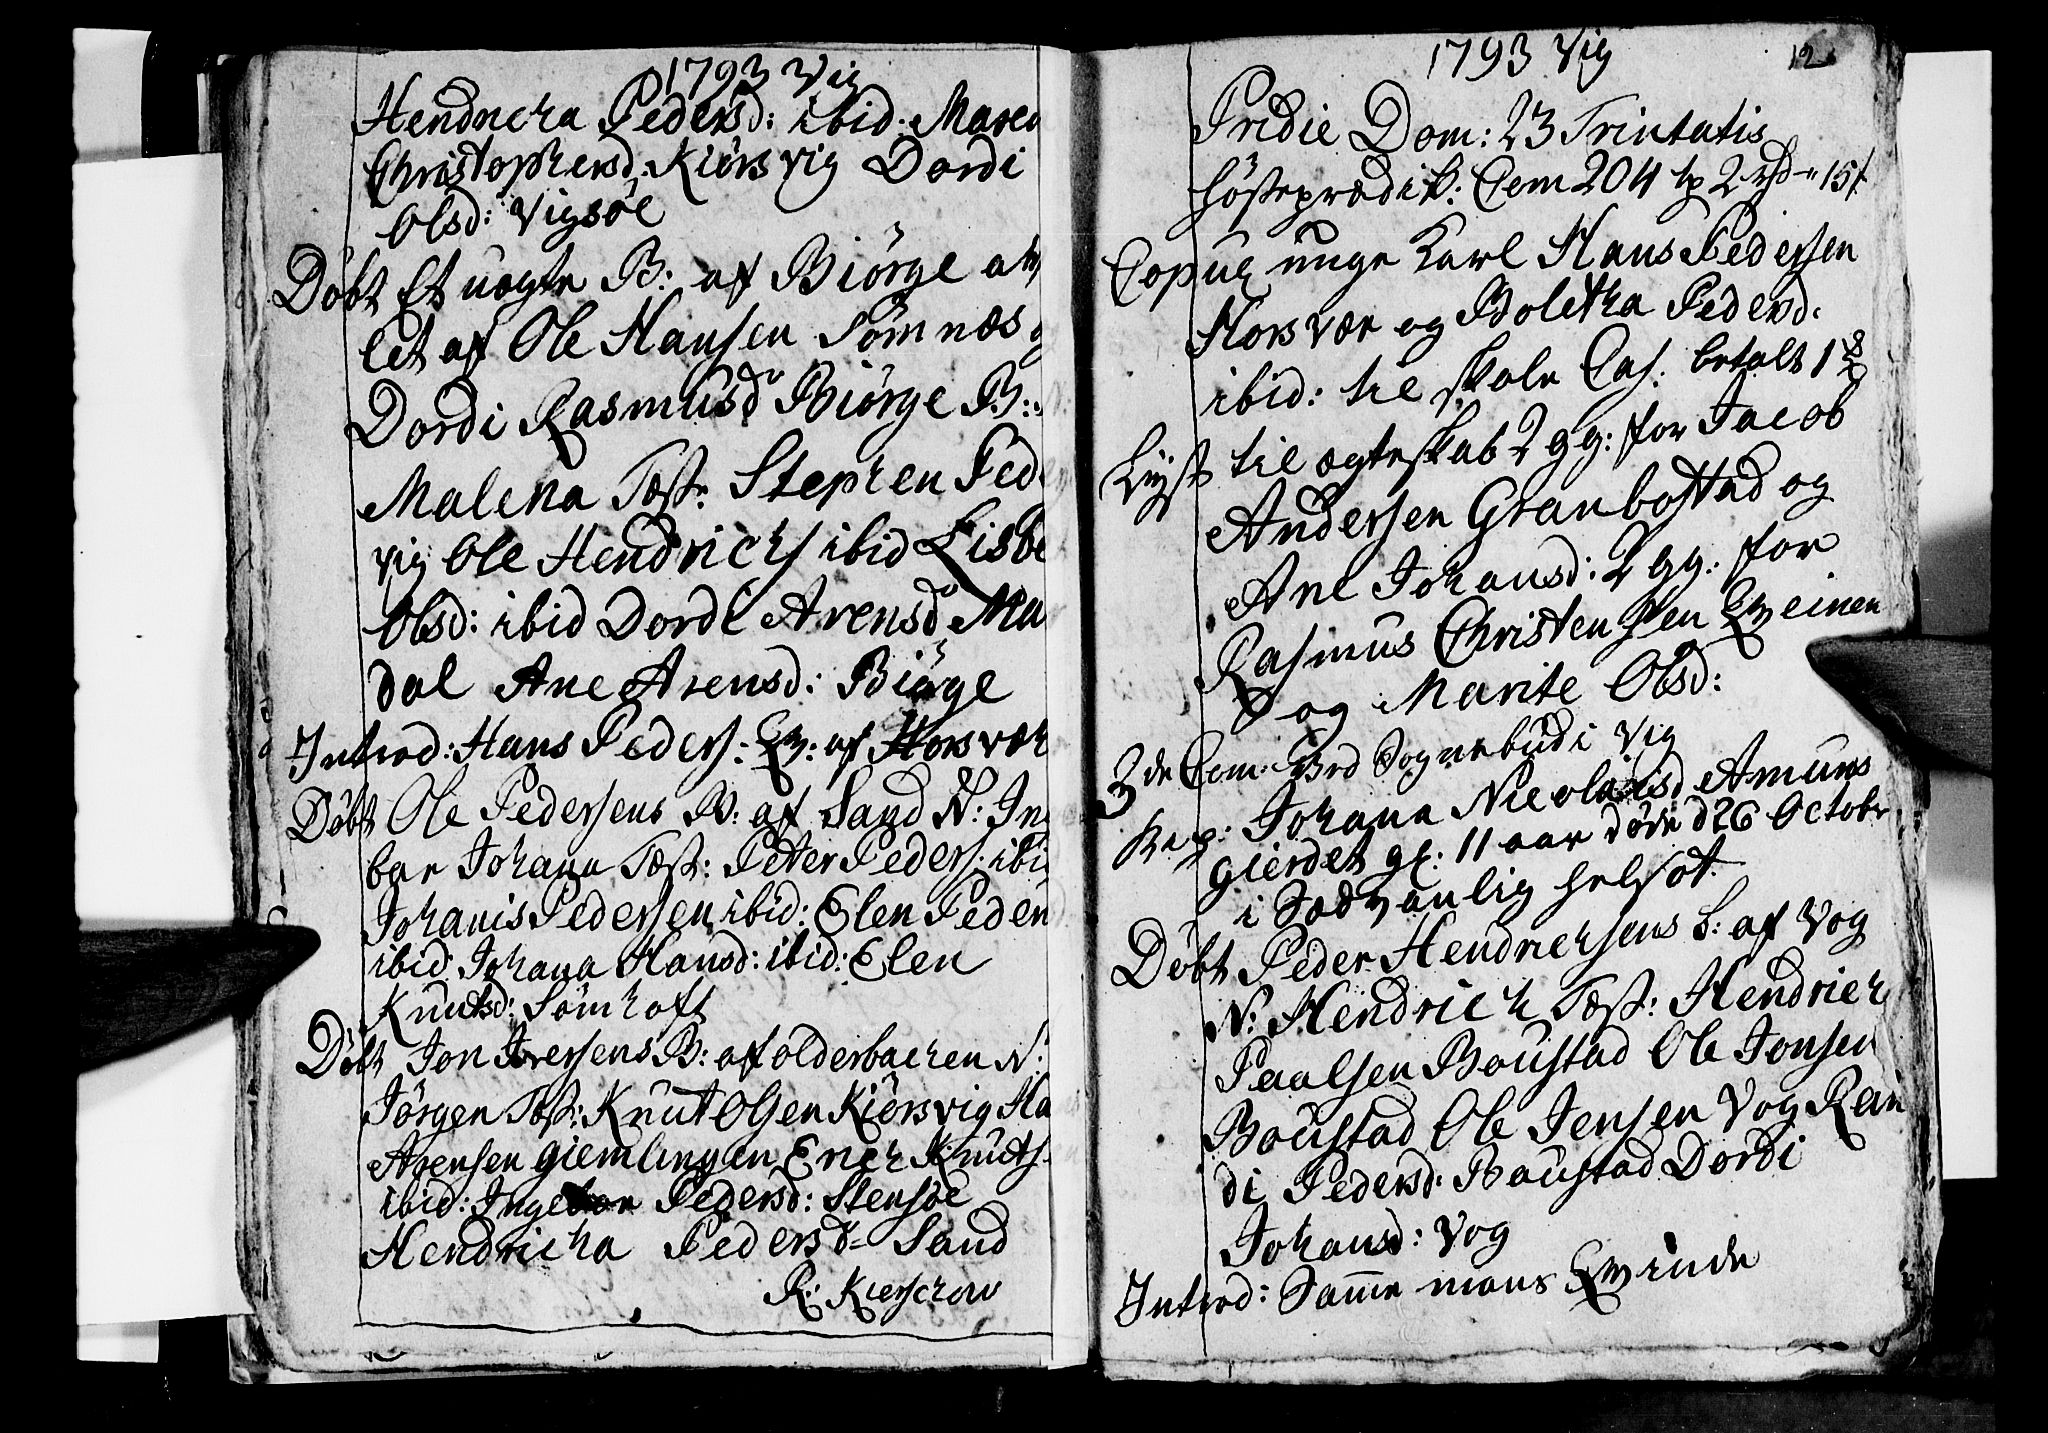 1793 Vig
Hendricha Pedersd: ibid: Maren
Christophersd. Kiörsvig Dordi
Olsd: Vigsöe
Döbt Et uægte B: af Biörge av
let af Ole Hansen Sömnæs
Dordi Rasmusd Biörge B:
Malena Test. Stephen Ped
vig Ole Hendrichs ibid Lisbe
Olsd: ibid Dordi Arensd Ma
dal Ane Arensd: Biörge
Introd: Hans Peders: Qv: af Horsvær
Döbt Ole Pedersens B: af Sand N: Inge
bor Johana Test: Peter Peders: ibid
Johanis Pedersen ibid: Elen Peders
ibid Johana Hansd: ibid: Elen
Knutsd: Sömhoft
Döbt Jon Iversens B: af olderbachen N:
Jörgen Test: Knut Olsen Kiörsvig Ha
Arensen giemlingen Enok Knuts:
ibid: Ingebor Pedersd: Stensöe
Hendricha Pedersd= Sand
R: Kierschow
1793 Vig
12
Pridie Dom: 23 Trinitatis
Hösteprædik: Com 204 tp 2 rd 15
Copul unge Karl Hans Pedersen
Horsvær og Boletha Pedersd:
ibid: til skole Cas. betalt 1
Lyst til ægteskab 2 gg: for Jacob
Andersen Granbostad og
Ane Johansd: 2 gg: for
Rasmus Christensen Qveinen
og Marite Olsd:
3de Com: Brd Sognebud i Vig
Rap: Johana Nicolaisd Amuns
gierdet gl: 11 aar döde d 26 Octobr
i Sædvanlig helsot.
Döbt Peder Hendrichsens B: af Vog
N: Hendrich Test: Hendrich
Paalsen Boustad Ole Jonsen
Boustad Ole Jensen Vog Ran
di Pedersd: Boustad Dordi
Johansd: Vog
Introd: Samme mans Qvinde